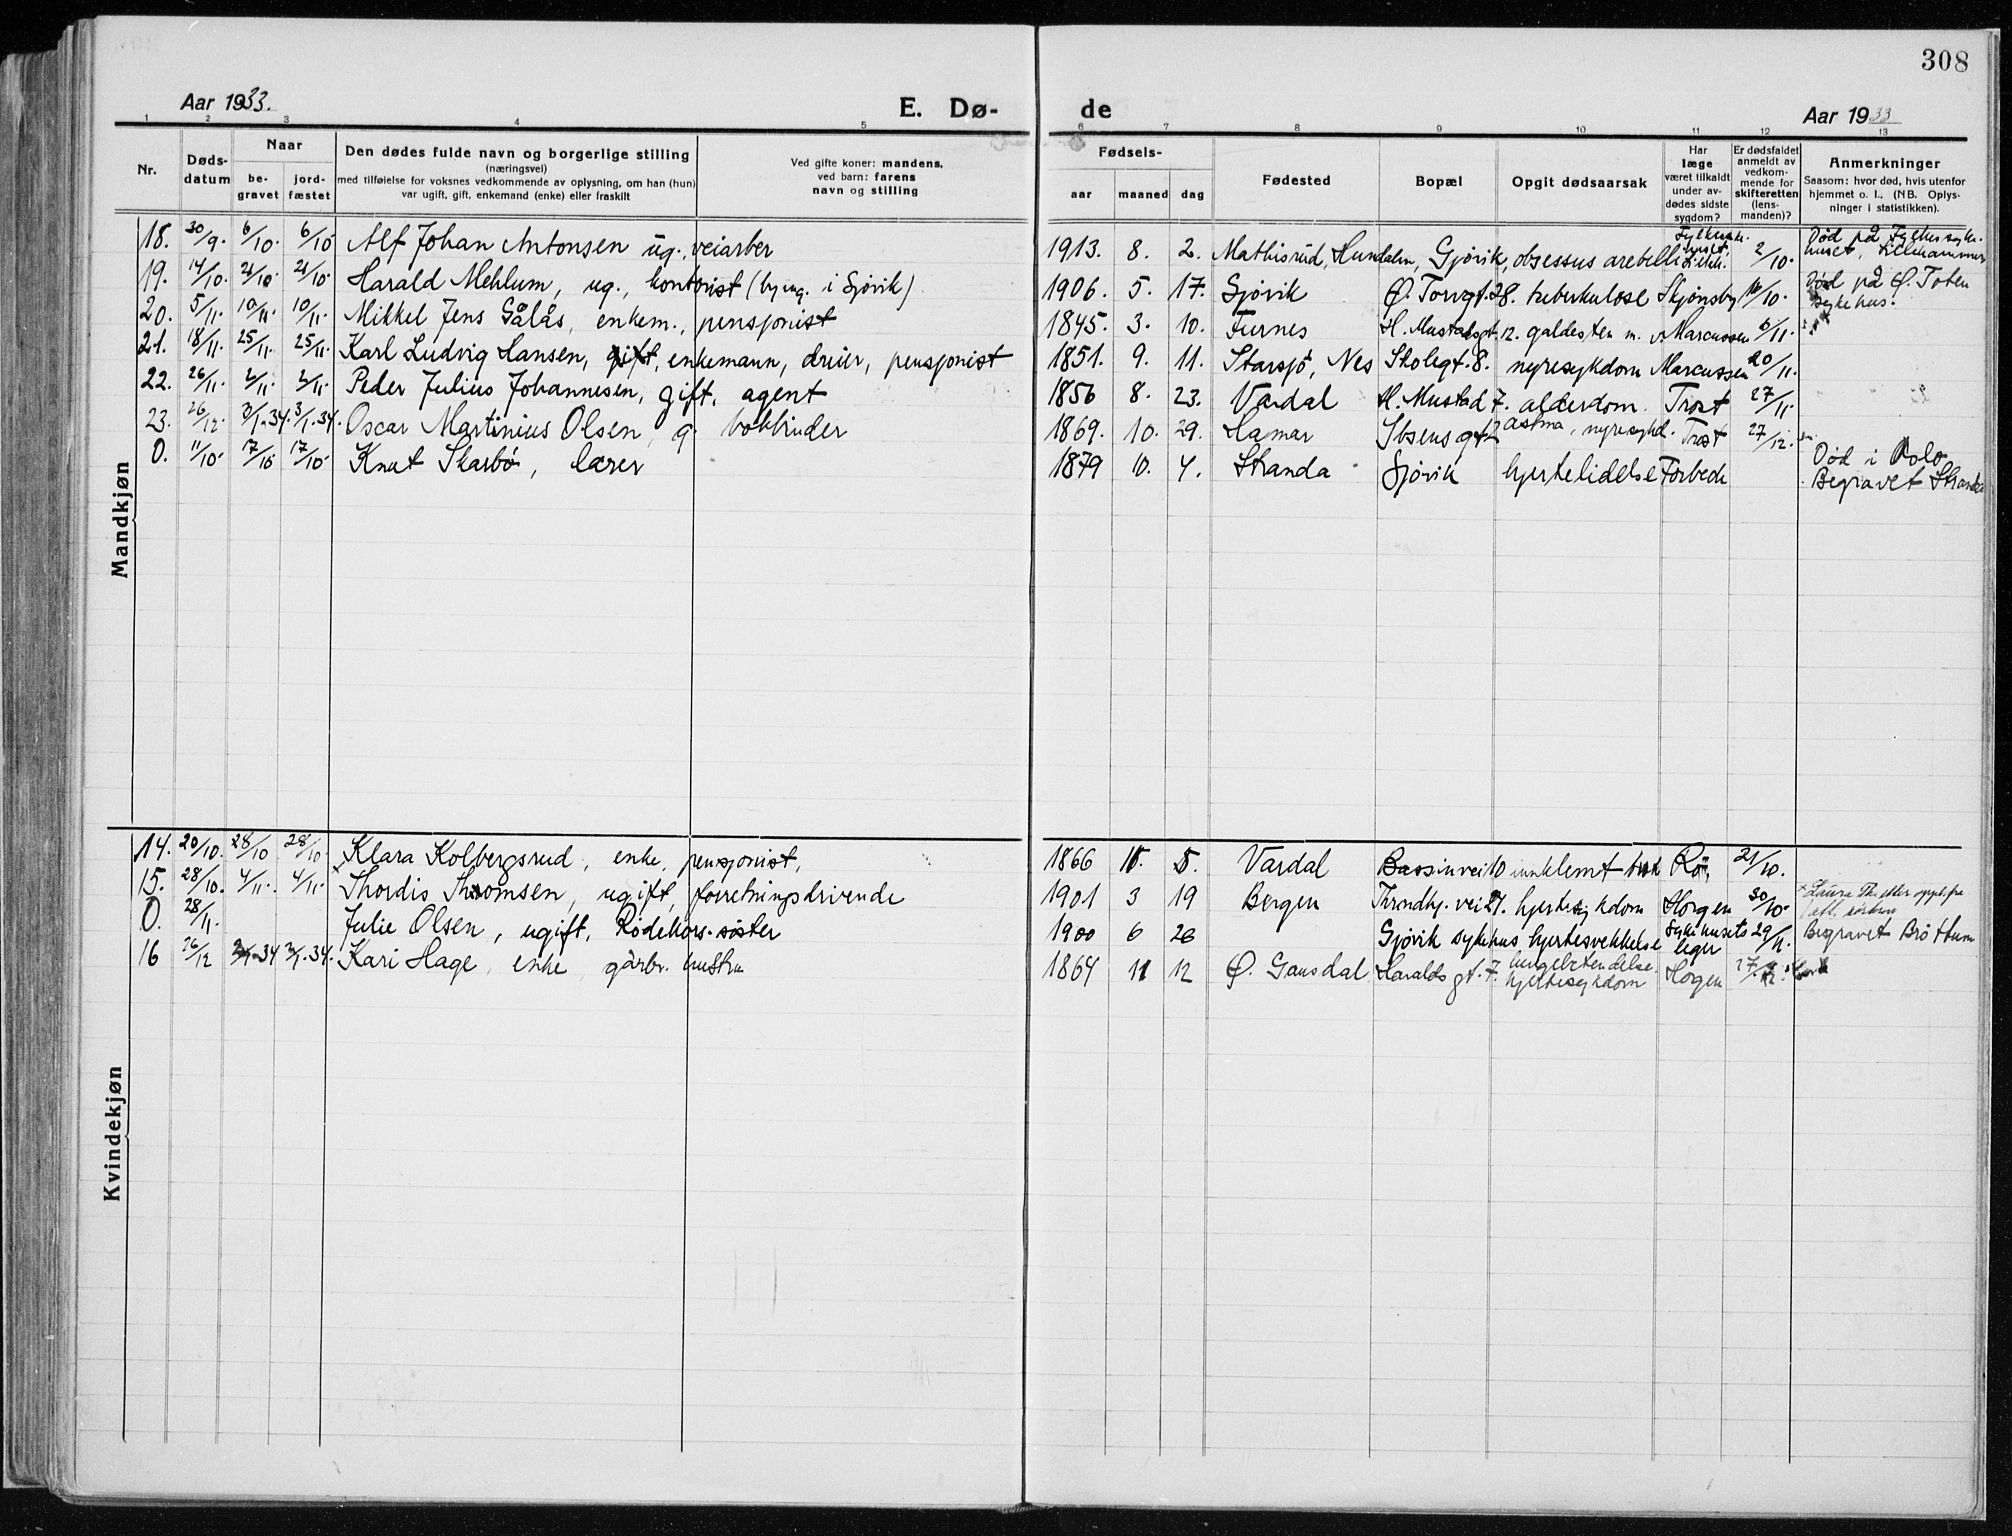 308
Aar 1933.
E. Dø-
de
Aar 1933
1 2 3 4 5 6 7 8 9 10 11 12 13
Nr.
Døds-
datum
Naar
be-
gravet
jord-
fæstet
Den dødes fulde navn og borgerlige stilling
(næringsvei)
med tilføielse for voksnes vedkommende av oplysning, om han (hun)
var ugift, gift, enkemand (enke) eller fraskilt
Ved gifte koner: mandens,
ved barn: farens
navn og stilling
Fødsels-
aar maaned dag
Fødested
Bopæl
Opgit dødsaarsak
Har
læge
været tilkaldt
under av-
dødes sidste
sygdom?
Er dødsfaldet
anmeldt av
vedkom-
mende for
skifteretten
(lens-
manden)?
Anmerkninger
Saasom: hvor død, hvis utenfor
hjemmet o. l., (NB. Oplys-
ninger i statistikken).
Mandkjøn
18. 30/9. 6/10. 6/10 Alf Johan Antonsen ug., veiarber 1913. 8. 2. Mathisrud, Hundalen, Gjøvik, 2/10. Død på Fylkessyke-
huset, Lillehammer
19. 14/10. 21/10 21/10. Harald Mehlum, ug., kontorist (bying. i Gjøvik) 1906. 5. 17. Gjøvik Ø. Torvgt. 28. tuberkulose Skjønsby 16/10. Død på Ø. Toten
sykehus.
20. 5/11. 10/11. 10/11. Mikkel Jens Gålås, enkem., pensjonist 1845. 3. 10. Furnes H. Mustadsgt. 12. galdesten m. v. Marcussen 6/11.
21. 18/11. 25/11. 25/11. Karl Ludvig Hansen, gift, enkemann, dreier, pensjonist 1851. 9. 11. Starsjø, Nes Skolegt. 8. nyresykdom Marcussen 20/11.
22. 26/11. 2/11. 2/11. Peder Julius Johannesen, gift, agent 1856 8. 23. Vardal H. Mustad 7. alderdom. Trost 27/11.
23. 26/12. 3/1.34. 3/1.34. Oscar Martinius Olsen, g. bokbinder 1869. 10. 29. Hamar Ibsens gt 2 astma, nyresykd. Trost 27/12.
0. 11/10. 17/10 17/10. Knut Skarbø, lærer 1879 10. 4. Stranda Gjøvik hjertelidelse Forbech Død i Oslo
Begravet Stranda
Kvindekjøn
14. 20/10. 28/10 28/10. Klara Kolbergsrud, enke, pensjonist, 1866 5. Vardal Bassinvei 10 innklemt brok Rø, 21/10.
15. 28/10. 4/11. 4/11. Thordis Thomsen, ugift, forretningsdrivende 1901 3 19 Bergen Trondhj. vei 27. hjertesykdom Horgen 30/10.
0. 28/11. Julie Olsen, ugift, Rødekors-sister 1900 6 26 Gjøvik sykehus hjertesvekkelse Sykehusets
leger 29/11. Begravet Brøttum
16 26/12 2/1.34 2/1.34. Kari Hage, enke gårbr. hustru 1864 11 12 Ø. Gausdal Haralds gt. 7. lungebetendelse,
hjertesykdom Horgen 27/12.